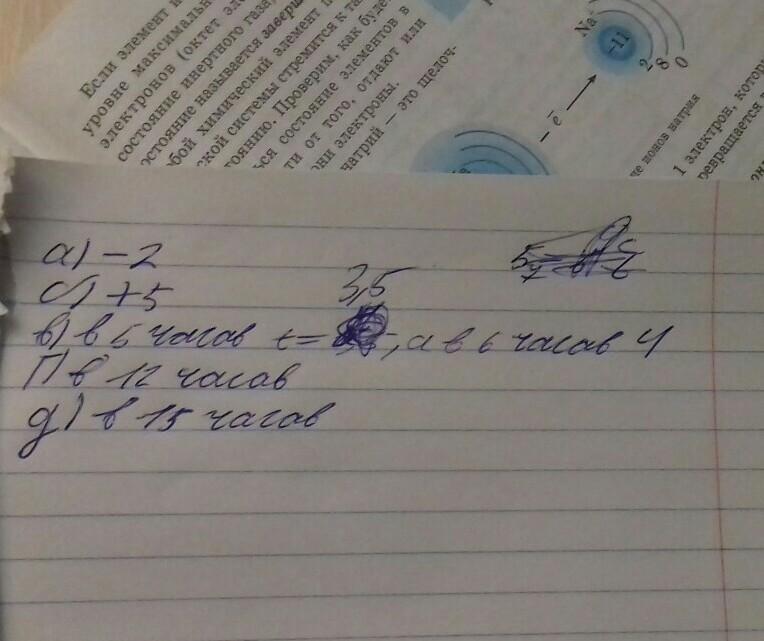 Если элемент и
уровне максимальн
электронов (октет эле
состояние инертного газа)
остояние называется заверш
бой химический элемент п
ской системы стремится к та
тоянию. Проверим, как буде
ься состояние элементов в
ти от того, отдают или
они электроны.
натрий — это щелоч-
− e̅
Na
-11
2
8
0
не ионов натрия
1 электрон, котор
ревращается
а) −2
б) +5
3,5
в) в 5 часов t= , а в 6 часов 4
Г) в 12 часов
д) в 15 часов